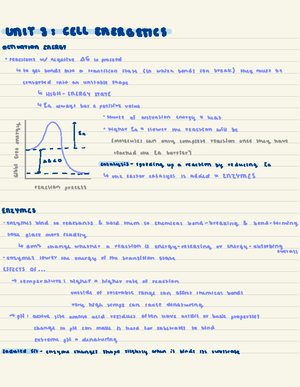 UNIT 3: CELL ENERGETICS
ACTIVATION ENERGY
• reactions w/ negative ΔG to proceed
↳ to get bonds into a transition phase (in which bonds can break) they must be
contorted into an unstable shape
↳ HIGH-ENERGY STATE
↳ Ea always has a positive value
• source of activation energy = heat
• higher Ea = slower the reaction will be
(molecules can only complete reaction once they have
reached the Ea barrier)
Ea
ΔG<0
reaction process
catalysis - speeding up a reaction by reducing Ea
↳ the factor catalyst is added = ENZYMES
ENZYMES
• enzymes bind to reactants & hold them so chemical bond-breaking & bond-forming
take place more readily
↳ don't change whether a reaction is energy-releasing or energy-absorbing
overall
• enzymes lower the energy of the transition state
EFFECTS OF...
→ temperature: higher = higher rate of reaction
outside of tolerable range can affect chemical bonds
very high temps can cause denaturing
→ pH: active site amino acid residues often have acidic or basic properties
change to pH can make it hard for substrate to bind
extreme pH = denaturing
induced fit - enzyme changes shape slightly when it binds its substrate